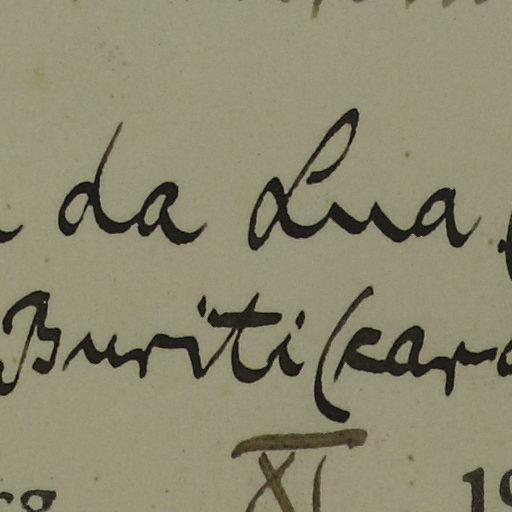 da Lua (
Buriti (car
XI 19